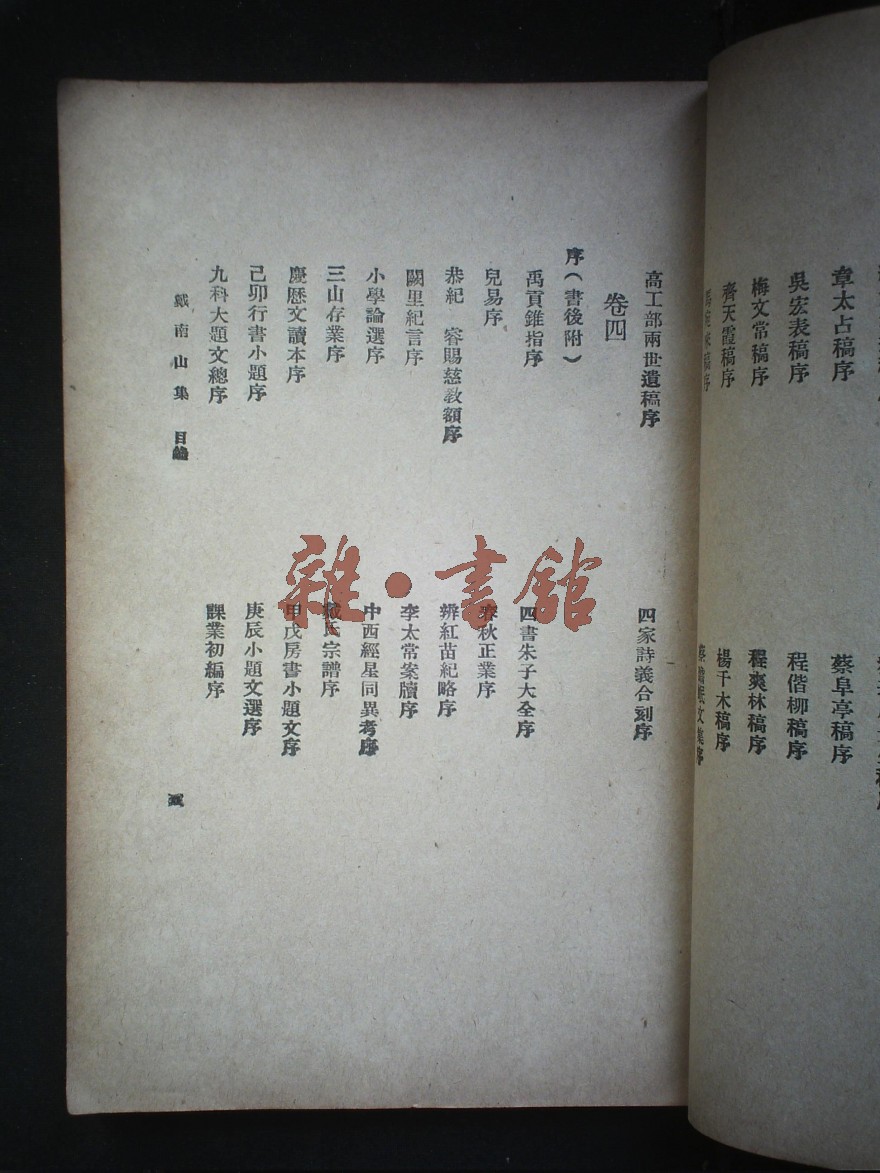 章太占稿序　蔡阜亭稿序
吳宏表稿序　程偕柳稿序
梅文常稿序　程爽林稿序
齊天霞稿序　楊千木稿序
稿序　蔡瞻岷文集序
高工部兩世遺稿序　四家詩義合刻序
卷四
序（書後附）
禹貢錐指序　四書朱子大全序
兒易序　春秋正業序
恭紀　睿賜慈敎額序　辨紅苗紀略序
闕里紀言序　李太常案牘序
小學論選序　中西經星同異考序
三山存業序　戴氏宗譜序
慶歷文讀本序　甲戌房書小題文序
己卯行書小題序　庚辰小題文選序
九科大題文總序　課業初編序
戴南山集　目錄
雜·書館